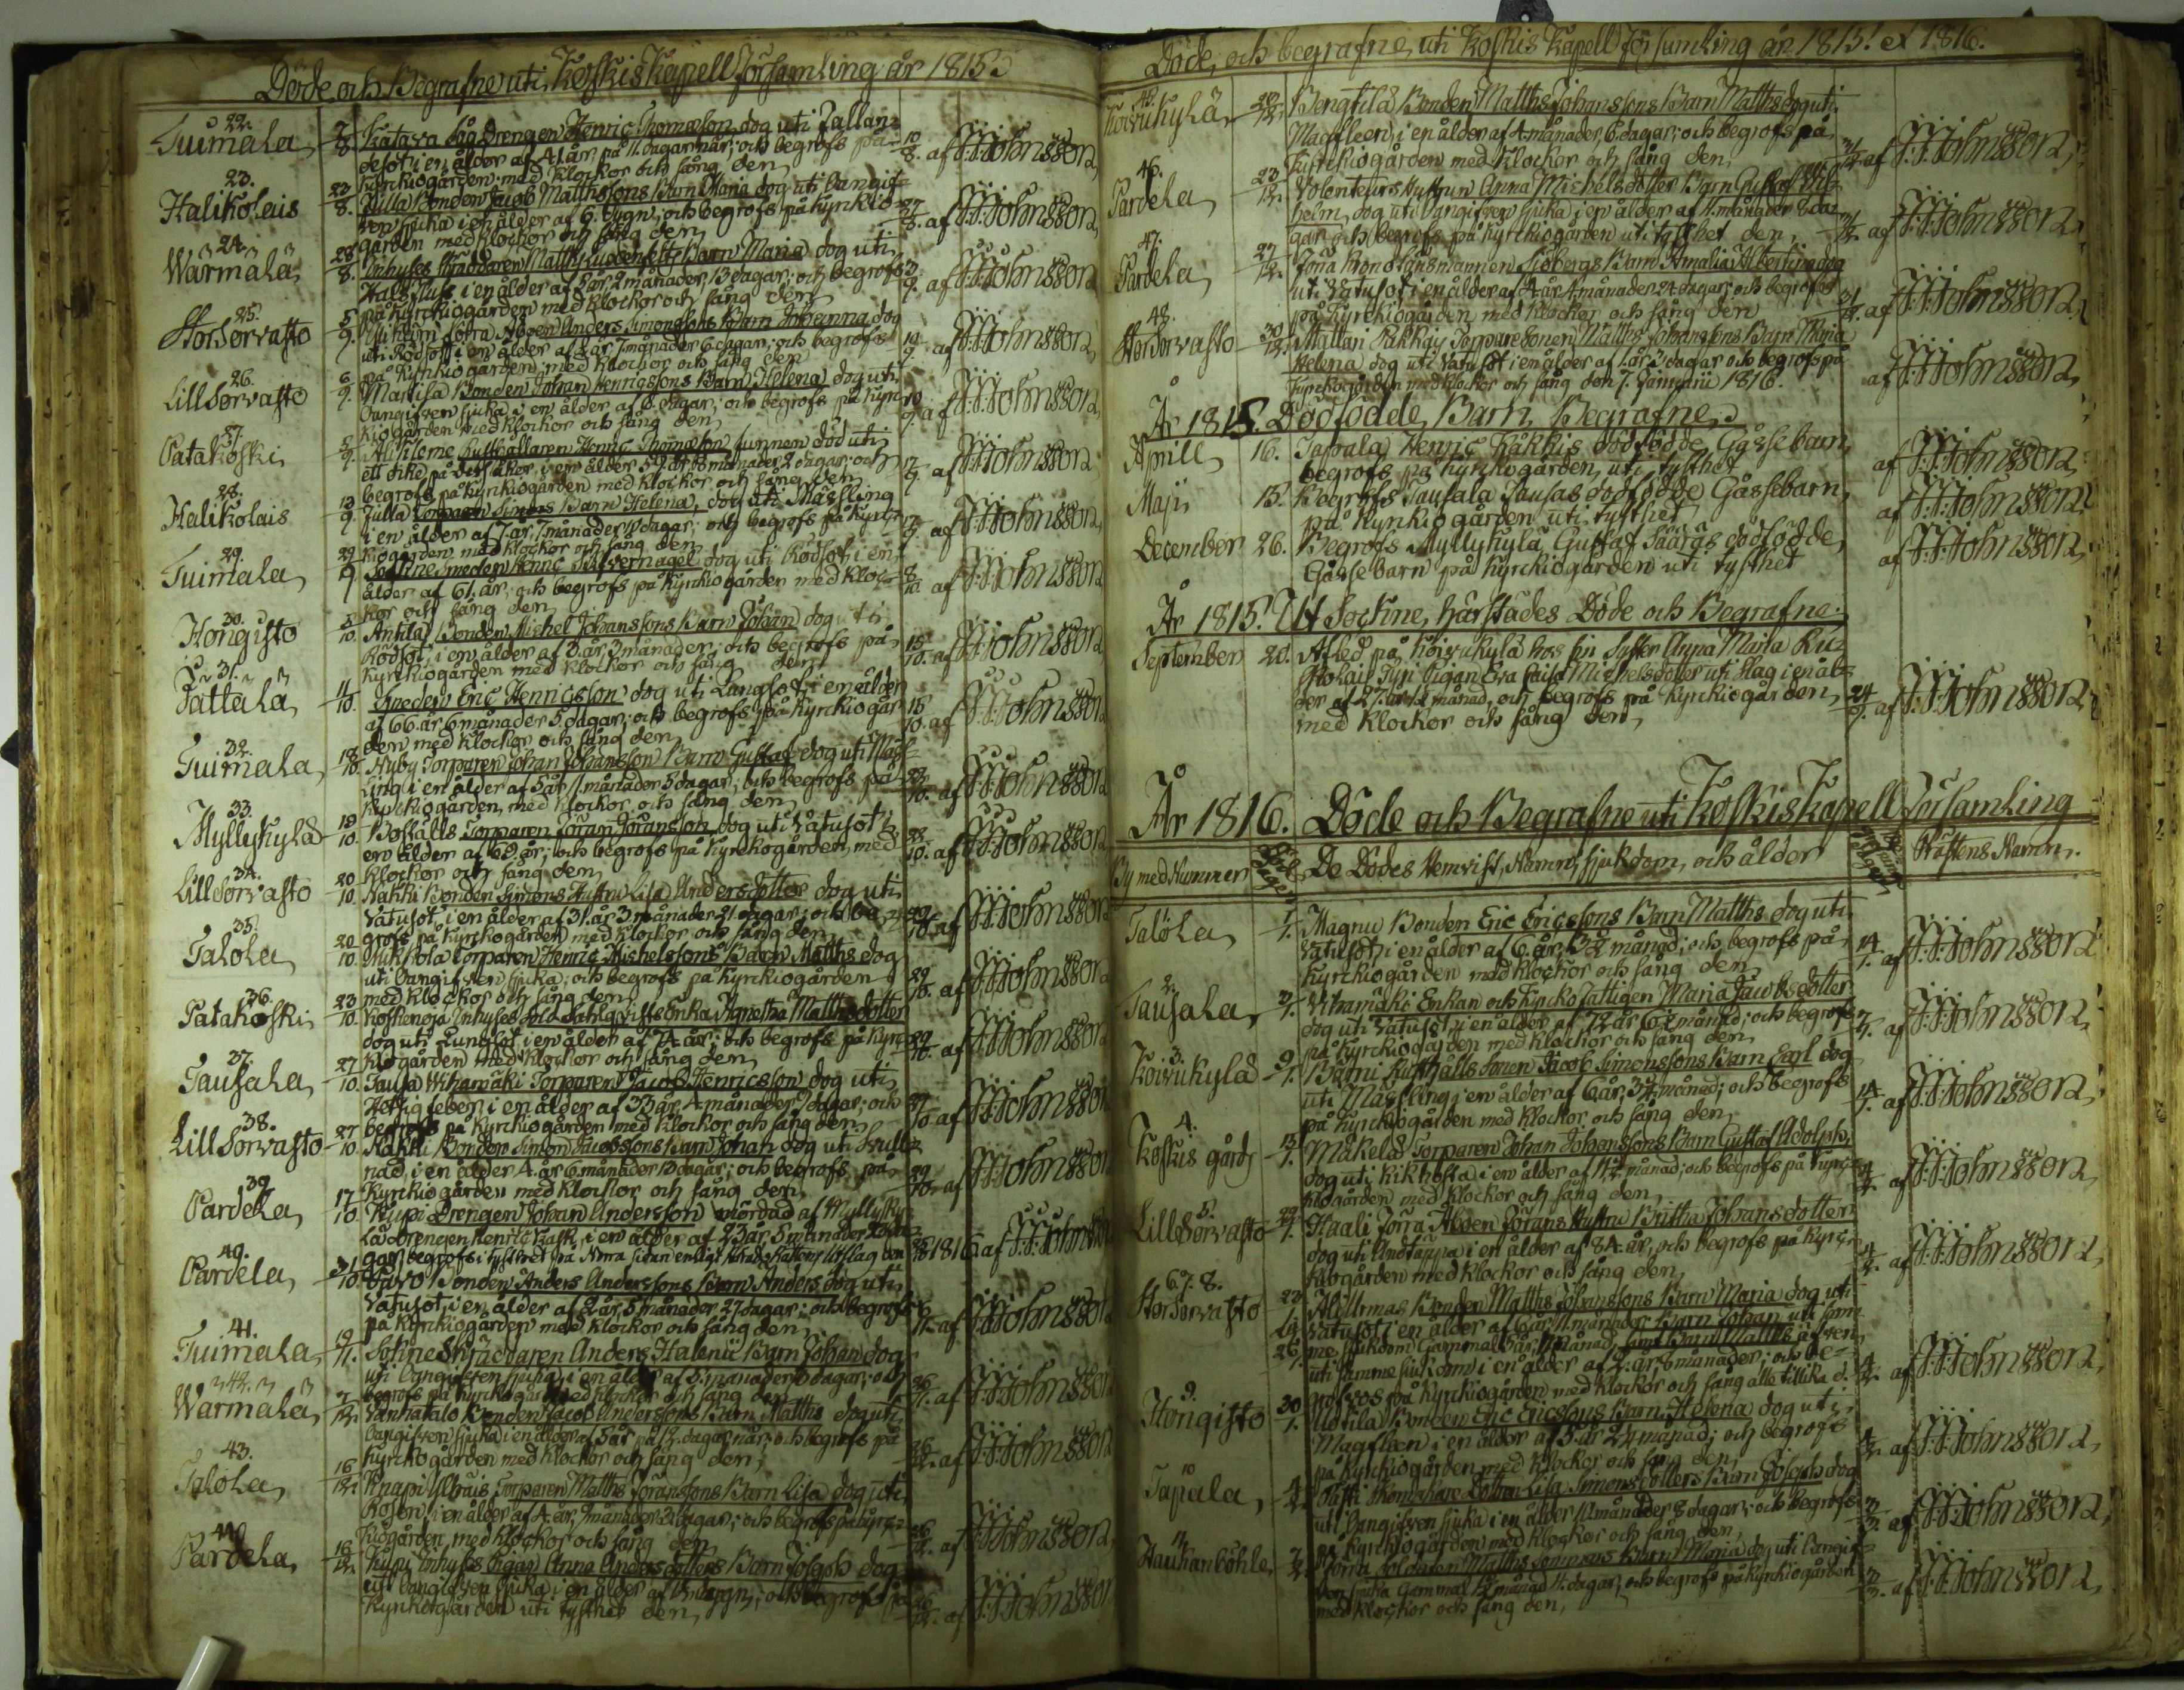 Döde och Begrafne uti Koskis Kapell Församling år 1815.
22. Tuimala 7/8. Katava Såg Drengen Henric Thomæson dog uti Fallan-
desot i en ålder af 41. år på 11. dagar när; och begrofs på 10/8. af J:J:Johnsson
Kyrckiogården med klockor och sång den
23. Halikolais 23/8. Jullá Bonden Jacob Matthssons Barn Maria dog uti Oangif-
ven sjuka i en ålder af 6. dygn; och begrofs på kyrckio- 27/8. af J:J:Johnsson
gården med klockor och sång den
24. Wärmälä 28/8. Inhyses Skräddaren Matths barn Maria dog uti
Halsfluss i en ålder af 5 år, 2 månader, 13 dagar; och begrofs 3/9. af J:J:Johnsson
på kyrckiogården med klockor och sång den
25. StorSorvasto 5/9. Jörra Anders Simonssons Barn Johanna dog
uti Rödsot i en ålder af 8 år 7 månader 6 dagar; och begrofs 10/9. af J:J:Johnsson
på kyrckiogården; med klockor och sång den
26. LillSorvasto 6/9. Markila Bonden Johan Henricssons Barn Helena dog uti
Oangifven sjuka i en ålder af 6. dagar; och begrofs på kyrc- 10/9. af J:J:Johnsson
kiogården med klockor och sång den
27. Patakoski 8/9. Hushållaren Henric Thomæson funnen död uti
ett dike på dess åker, i en ålder 59 år 8 månader 2 dagar; och 17/9. af J:J:Johnsson
begrofs på kyrckiogården med klockor och sång den
28. Halikolais 13/9. Julla Torparen Simons Barn Helena, dog uti Mässling
i en ålder af 7. år, 7 månader dagar; och begrofs på kyrc- 17/9. af J:J:Johnsson
kiogården med klockor och sång den
29. Tuimala 29/9. Smeden Henric Silfvernagel dog uti Rödsot, i en
ålder af 61. år, och begrofs på kyrckiogården med kloc- 8/10. af J:J:Johnsson
kor och sång den
30. Hongisto 5/10. Anttila Bonden Michel Johanssons Barn Johan dog uti
Rödsot, i en ålder af 3. år 3 månader; och begrofs på 15/10. af J:J:Johnsson
kyrckiogården med klockor och sång den
31. Pättälä 11/10. Smeden Eric Henricsson dog uti Lungsot i en ålder
af 66 år 6 månader 5 dagar; och begrofs på kyrckiogår- 15/10. af J:J:Johnsson
den med klockor och sång den
32. Tuimala 18/10. Nuby Torparen Johan Johansson Barn Gustaf dog uti Mäss-
ling i en ålder af 5 år 11. månader 5 dagar; och begrofs på 22/10. af J:J:Johnsson
kyrckiogården med klockor och sång den
33. Myllykylä 19/10. Boställs Torparen Jöran Jöransson dog uti Vatusot i
en ålder af 69. år; och begrofs på kyrckogården, med 22/10. af J:J:Johnsson
klockor och sång den
34. LillSorvasto 20/10. Nakki Bonden Simons Hustru Lisa Andersdotter dog uti
Vatusot, i en ålder af 31. år 3 månader 21 dagar; och be- 29/10. af J:J:Johnsson
grofs på kyrckogården med klockor och sång den
35. Talola 20/10. Mikkola Torparen Henric Michelssons Barn Matths dog
uti Oangifven sjuka; och begrofs på kyrckiogården 29/10. af J:J:Johnsson
med klockor och sång den
36. Patakoski 23/10. Koskenoja Inhyses Sold. Dahlqvists Enka Agnetha Matthsdotter
dog uti Lungsot, i en ålder af 74 år; och begrofs på kyrc- 29/10. af J:J:Johnsson
kiogården med klockor och sång den
37. Tausala 27/10. Tausa Wihamäki Torparen Jacob Henricsson dog uti
Hettig feber i en ålder af 33 år 4 månader dagar; och 29/10. af J:J:Johnsson
begrofs på kyrckiogården med klockor och sång den
38. LillSorvasto 27/10. Nakki Bonden Simon Jacobssons Barn Johan dog uti Svull-
nad, i en ålder 4. år 6 månader 13 dagar; och begrofs på 29/10. af J:J:Johnsson
kyrckiogården med klockor och sång den
39. Pardela 17/10. Kupi Drengen Johan Andersson mördad af Myllyky-
lä drengen Henric Kask, i en ålder af 23 år 5 månader da-
gar, begrofs i tysthet på Norra sidan enligt Härads Rättens utslag den 1816 af J:J:Johnsson
40. Pardela 31/10. Paavo Bonden Anders Anderssons Barn Anders dog uti
Vatusot, i en ålder af 2 år 5 månader 27 dagar; och begrofs af J:J:Johnsson
på kyrckiogården med klockor och sång den
41. Tuimala 19/11. Skräddaren Anders Halenii Barn Johan dog
uti Oangifven sjuka, i en ålder af 3. månader dagar, och 26/11. af J:J:Johnsson
begrofs på kyrckiogården med klockor och sång den
42. Wärmälä 7/12. Vanhatalo Bonden Jacob Anderssons Barn Matths dog uti
Oangifven sjuka i en ålder af 5 år på 12. dagar när; och begrofs på af J:J:Johnsson
kyrckogården med klockor och sång den,
43. Talola 16/12. Knapi Torparen Matths Jöranssons Barn Lisa dog uti
Rosen, i en ålder af 4 år, 7 månader 2 dagar; och begrofs på kyrc- af J:J:Johnsson
kiogården med klockor och sång den
44. Pardela 18/12. Kupi Inhyses Pigan Anna Andersdotters Barn Joseph dog
uti Oangifven sjuka i en ålder af dygn; och begrofs på af J:J:Johnsson
kyrckogården uti tysthet den,
Döde, och begrafne, uti Koskis Kapell församling år 1815. et 1816.
45. Koivukylä 28/12. Bengtilä Bonden Matths Johanssons Barn Matths dog uti
Magsleen i en ålder af 4 månader, 6 dagar; och begrofs på 31/12. af J:J:Johnsson
kyrckiogården med klockor och sång den,
46. Pardela 23/12. Volonteurs Hustrun Anna Michelsdotter Barn Gustaf Wil-
helm, dog uti Oangifven sjuka i en ålder af 11. månader 8 da-
gar och begrofs på kyrckiogården uti tysthet den, 31/12. af J:J:Johnsson
47. Pardela 27/12. Jöra Krono Länsmannen Sjöbergs Barn Amalia Albertina dog
uti Vatusot i en ålder af 4 år 4 månader 24 dagar; och begrofs
på kyrckiogården med klockor och sång den 31/12. af J:J:Johnsson
48. StorSorvasto 30/12. Mattari Pakkay Torparesonen Matths Johanssons Barn Maria
Helena dog uti Vatusot i en ålder af 1. år 3 dagar och begrofs på
kyrckogården med klockor och sång den 7. Januarii 1816. af J:J:Johnsson
År 1815. Dödfödde Barn Begrafne.
Aprill 16. Tapala Henric Kåkkis dödfödde Gåssebarn
begrofs på kyrckogården, uti tysthet af J:J:Johnsson
Maji 15. Begrofs Tausala Tausas dödfödde Gåssebarn
på kyrckiogården uti tysthet af J:J:Johnsson
December 26. Begrofs Myllykylä Gustaf Sääräs dödfödde
Gåsse barn på kyrckiogården uti tysthet af J:J:Johnsson
År 1815. Ut Sockne, härstädes Döde och Begrafne.
September 20. Afled på Koivukylä hos sin Syster Anna Maria
Pigan Eva Caisa Michelsdotter uti Slag i en ål-
der af 27. år 1 månad, och begrofs på kyrckiogården,
med klockor och sång den, 24/9. af J:J:Johnsson
År 1816. Döde och Begrafne uti Koskis Kapell Församling
By med Nummer De Dödes Hemvist, Namn, sjukdom, och ålder Prästens Namn.
Talola 1/1. Magnu Bonden Eric Ericssons Barn Matths dog uti
Vatusot, i en ålder af 6 år, månad; och begrofs på 14/1. af J:J:Johnsson
kyrckiogården med klockor och sång den
2. Tausala 2/1. Vihamäki Enkan och Kyrckofattigen Maria Jacobsdotter
dog uti Vatusot, i en ålder af 72 år månad; och begrofs 7/1. af J:J:Johnsson
på kyrckiogården med klockor och sång den
3. Koivukylä 9/1. Bärni Rusthålls Sonen Jacob Simonssons Barn Carl dog
uti Mässling i en ålder af 6 år, månad; och begrofs 14/1. af J:J:Johnsson
på kyrckiogården med klockor och sång den
4. Koskis gård 13/1. Mäkelä Torparen Johan Johanssons Barn Gustaf Adolph
dog uti kikhosta i en ålder af månad; och begrofs på kyrc- af J:J:Johnsson
kiogården med klockor och sång den
5. LillSorvasto 22/1. Haali Jörra Jörans Hustru Britha Johansdotter
dog uti Andtäppa i en ålder af 84 år, och begrofs på kyrc- af J:J:Johnsson
kiogården med klockor och sång den
6. 7. 8. StorSorvasto 23/1. Bonden Matths Johanssons Barn Maria dog uti
Vatusot i en ålder af 6 år 11. månader Barn Johan uti sam-
26/1. me sjukdom Gammal år, månad, samt Barn Matths äfven
uti samme sjukdom i en ålder af 2. år 6 månader; och be-
grofvos på kyrckiogården med klockor och sång alle tillika d. 4/2. af J:J:Johnsson
9. Hongisto 30/1. Uotila Bonden Eric Ericssons Barn Helena dog uti
Magsleen i en ålder af 5 år månad; och begrofs
på kyrckiogården med klockor och sång den, 4/2. af J:J:Johnsson
10 Tapala 4/2. Lisa Simonsdotters Barn Joseph dog
uti Oangifven sjuka i en ålder månader 8 dagar; och begrofs
på kyrckiogården med klockor och sång den, af J:J:Johnsson
11. Jörra Soldaten Matths Barn Maria dog uti Oangif-
ven sjuka Gammal månad 11. dagar, och begrofs på kyrckiogården
med klockor och sång den, af J:J:Johnsson